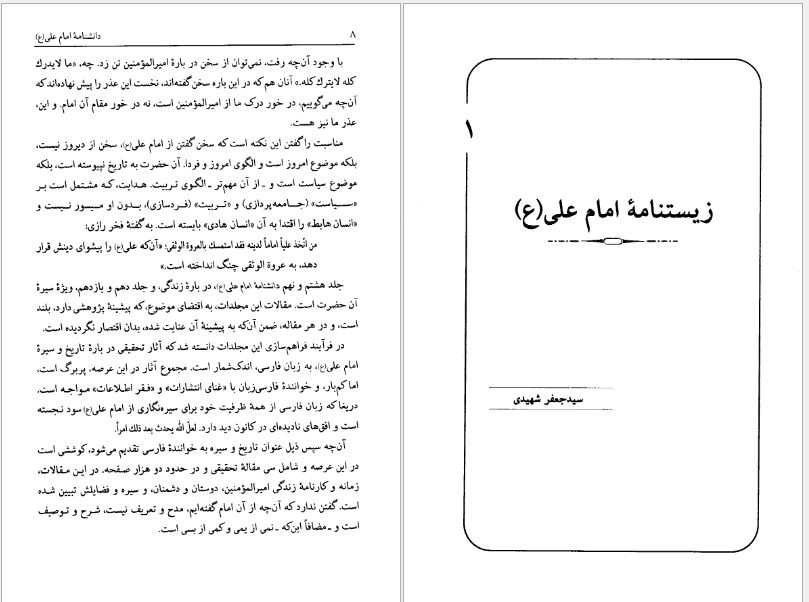 ۸
دانشنامهٔ امام علی(ع)
با وجود آن‌چه رفت، نمی‌توان از سخن در بارهٔ امیرالمؤمنین تن زد. چه، «ما لایدرك
كله لایترك كله.» آنان هم که در این باره سخن گفته‌اند، نخست این عذر را پیش نهاده‌اند که
آن‌چه می‌گوییم، در خور درک ما از امیرالمؤمنین است، نه در خور مقام آن امام. و این،
عذر ما نیز هست.
مناسبت را گفتن این نکته است که سخن گفتن از امام علی(ع)، سخن از دیروز نیست،
بلکه موضوع امروز است و الگوی امروز و فردا. آن حضرت به تاریخ نپیوسته است، بلکه
موضوع سیاست است و ـ از آن مهم‌تر ـ الگوی تربیت. هدایت، که مشتمل است بر
«سیاست» (جامعه‌پردازی) و «تربیت» (فردسازی)، بدون او میسور نیست و
«انسان هابط» را اقتدا به آن «انسان هادی» بایسته است. به گفتهٔ فخر رازی:
من اتّخذ علیاً اماماً لدینه فقد استمسك بالعروة الوثقی؛ «آن‌که علی(ع) را پیشوای دینش قرار
دهد، به عروة الوثقی چنگ انداخته است.»
جلد هشتم و نهم دانشنامهٔ امام علی(ع)، در بارهٔ زندگی، و جلد دهم و یازدهم، ویژهٔ سیرهٔ
آن حضرت است. مقالات این مجلدات، به اقتضای موضوع، که پیشینهٔ پژوهشی دارد، بلند
است، و در هر مقاله، ضمن آن‌که به پیشینهٔ آن عنایت شده، بدان اقتصار نگردیده است.
در فرآیند فراهم‌سازی این مجلدات دانسته شد که آثار تحقیقی در بارهٔ تاریخ و سیرهٔ
امام علی(ع)، به زبان فارسی، اندک‌شمار است. مجموع آثار در این عرصه، پربرگ است،
اما کم‌بار، و خوانندهٔ فارسی‌زبان با «غنای انتشارات» و «فقر اطلاعات» مواجه است.
دریغا که زبان فارسی از همهٔ ظرفیت خود برای سیره‌نگاری از امام علی(ع) سود نجسته
است و افق‌های نادیده‌ای در کانون دید دارد. لعلّ الله یحدث بعد ذلك امراً.
آن‌چه سپس ذیل عنوان تاریخ و سیره به خوانندهٔ فارسی تقدیم می‌شود، کوششی است
در این عرصه و شامل سی مقالهٔ تحقیقی و در حدود دو هزار صفحه. در این مقالات،
زمانه و کارنامهٔ زندگی امیرالمؤمنین، دوستان و دشمنان، و سیره و فضایلش تبیین شده
است. گفتن ندارد که آن‌چه از آن امام گفته‌ایم، مدح و تعریف نیست، شرح و توصیف
است و ـ مضافاً این‌که ـ نمی از یمی و کمی از بسی است.
۱
زیستنامهٔ امام علی(ع)
سیدجعفر شهیدی